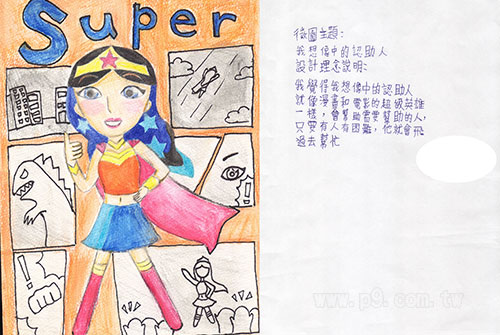 Super
繪圖主題:
我想像中的認助人
設計理念說明:
我覺得我想像中的認助人
就像漫畫和電影的超級英雄
一樣，會幫助需要幫助的人，
只要有人有困難，他就會飛
過去幫忙
www.p9.com.tw